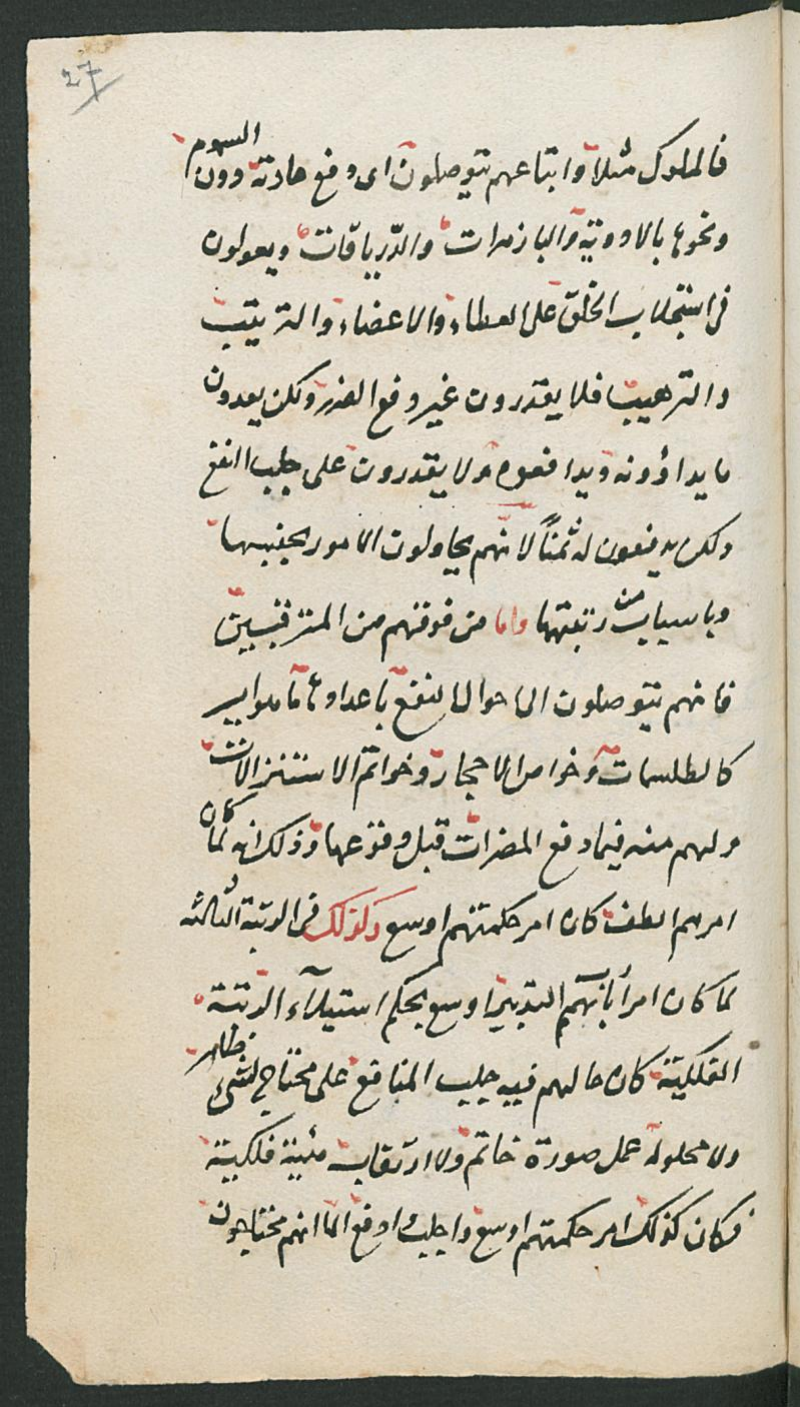 27
فالملوك مثلا واتباعهم يتوصلون الى دفع عادته دون السموم
ونحوها بالادوية والبازهرات والدرياقات ويعولون
فى استجلاب الخلق على العطاء والاعضاء والترتيب
والترهيب فلا يقدرون غير دفع الضرر ولكن يعدون
ما يداؤونه ويدافعوه ولا يقدرون على جلب النفع
ولكن يدفعون له ثمناً لانهم يحاولون الامور بجنبها
وباسباب من رتبتها واما من فوقهم من المترقبين
فانهم يتوصلون الى احوال النفع باعدادها
كالطلسمات وخواص الاحجار وخواتم الاستنزالات
ولهم منه فيما دفع المضرات قبل وقوعها وذلك انه لما كان
امرهم الطف كان امر حكمتهم اوسع وكذلك فى الرتبة الثالثه
لما كان امر التدبير اوسع بحكم استيلآء الرتبة
الفلكية كان حالهم فيه جلب المنافع على محتاج لشئ ظاهر
ولا محلوله عمل صورة خاتم ولا ارتقاب فلكية
فكان كذلك امر حكمتهم اوسع واجلب وادفع الا انهم محتاجون